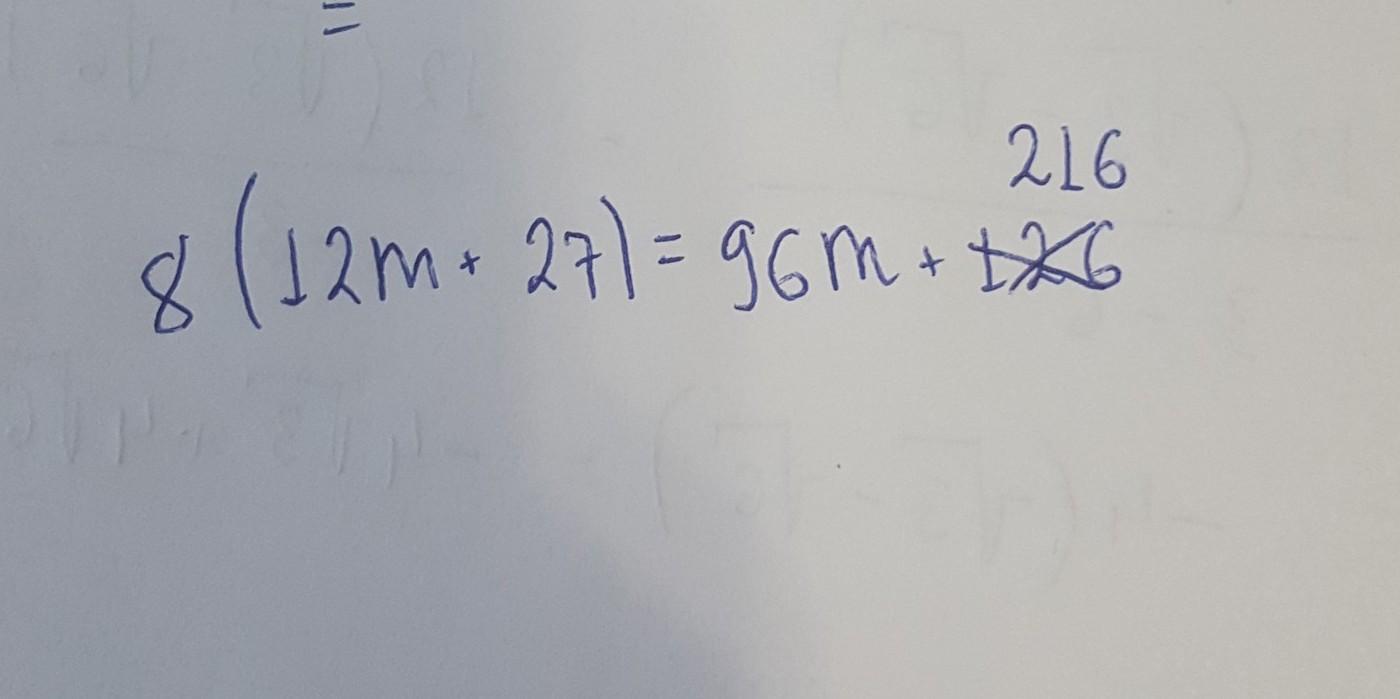 =
216
8 (12m + 27) = 96m + 126